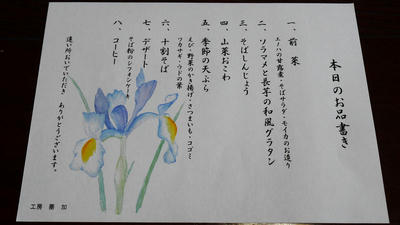 本日のお品書き
一、前菜
エノハの甘露煮・そばサラダ・モイカのお造り
二、ソラマメと長芋の和風グラタン
三、そばしんじょう
四、山菜おこわ
五、季節の天ぷら
えび・野菜のかき揚げ・さつまいも・コゴミ
ワカサギ・ウドの葉
六、十割そば
七、デザート
そば粉のシフォンケーキ
八、コーヒー
遠い所おいでいただき ありがとうございます。
工房
加